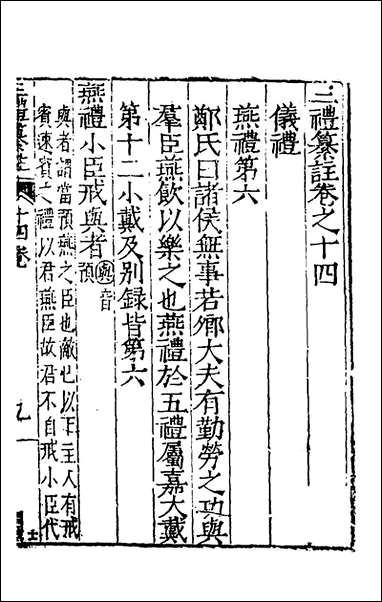 三禮纂註卷之十四
儀禮
燕禮第六
鄭氏曰諸侯無事若卿大夫有勤勞之功與
羣臣燕飲以樂之也燕禮於五禮屬嘉大戴
第十二小戴及别録皆第六
燕禮小臣戒與者與音預
與者謂當預燕之臣也敵也以下主人有戒
賓速賓之禮以君燕臣故君不自戒小臣代
十四卷